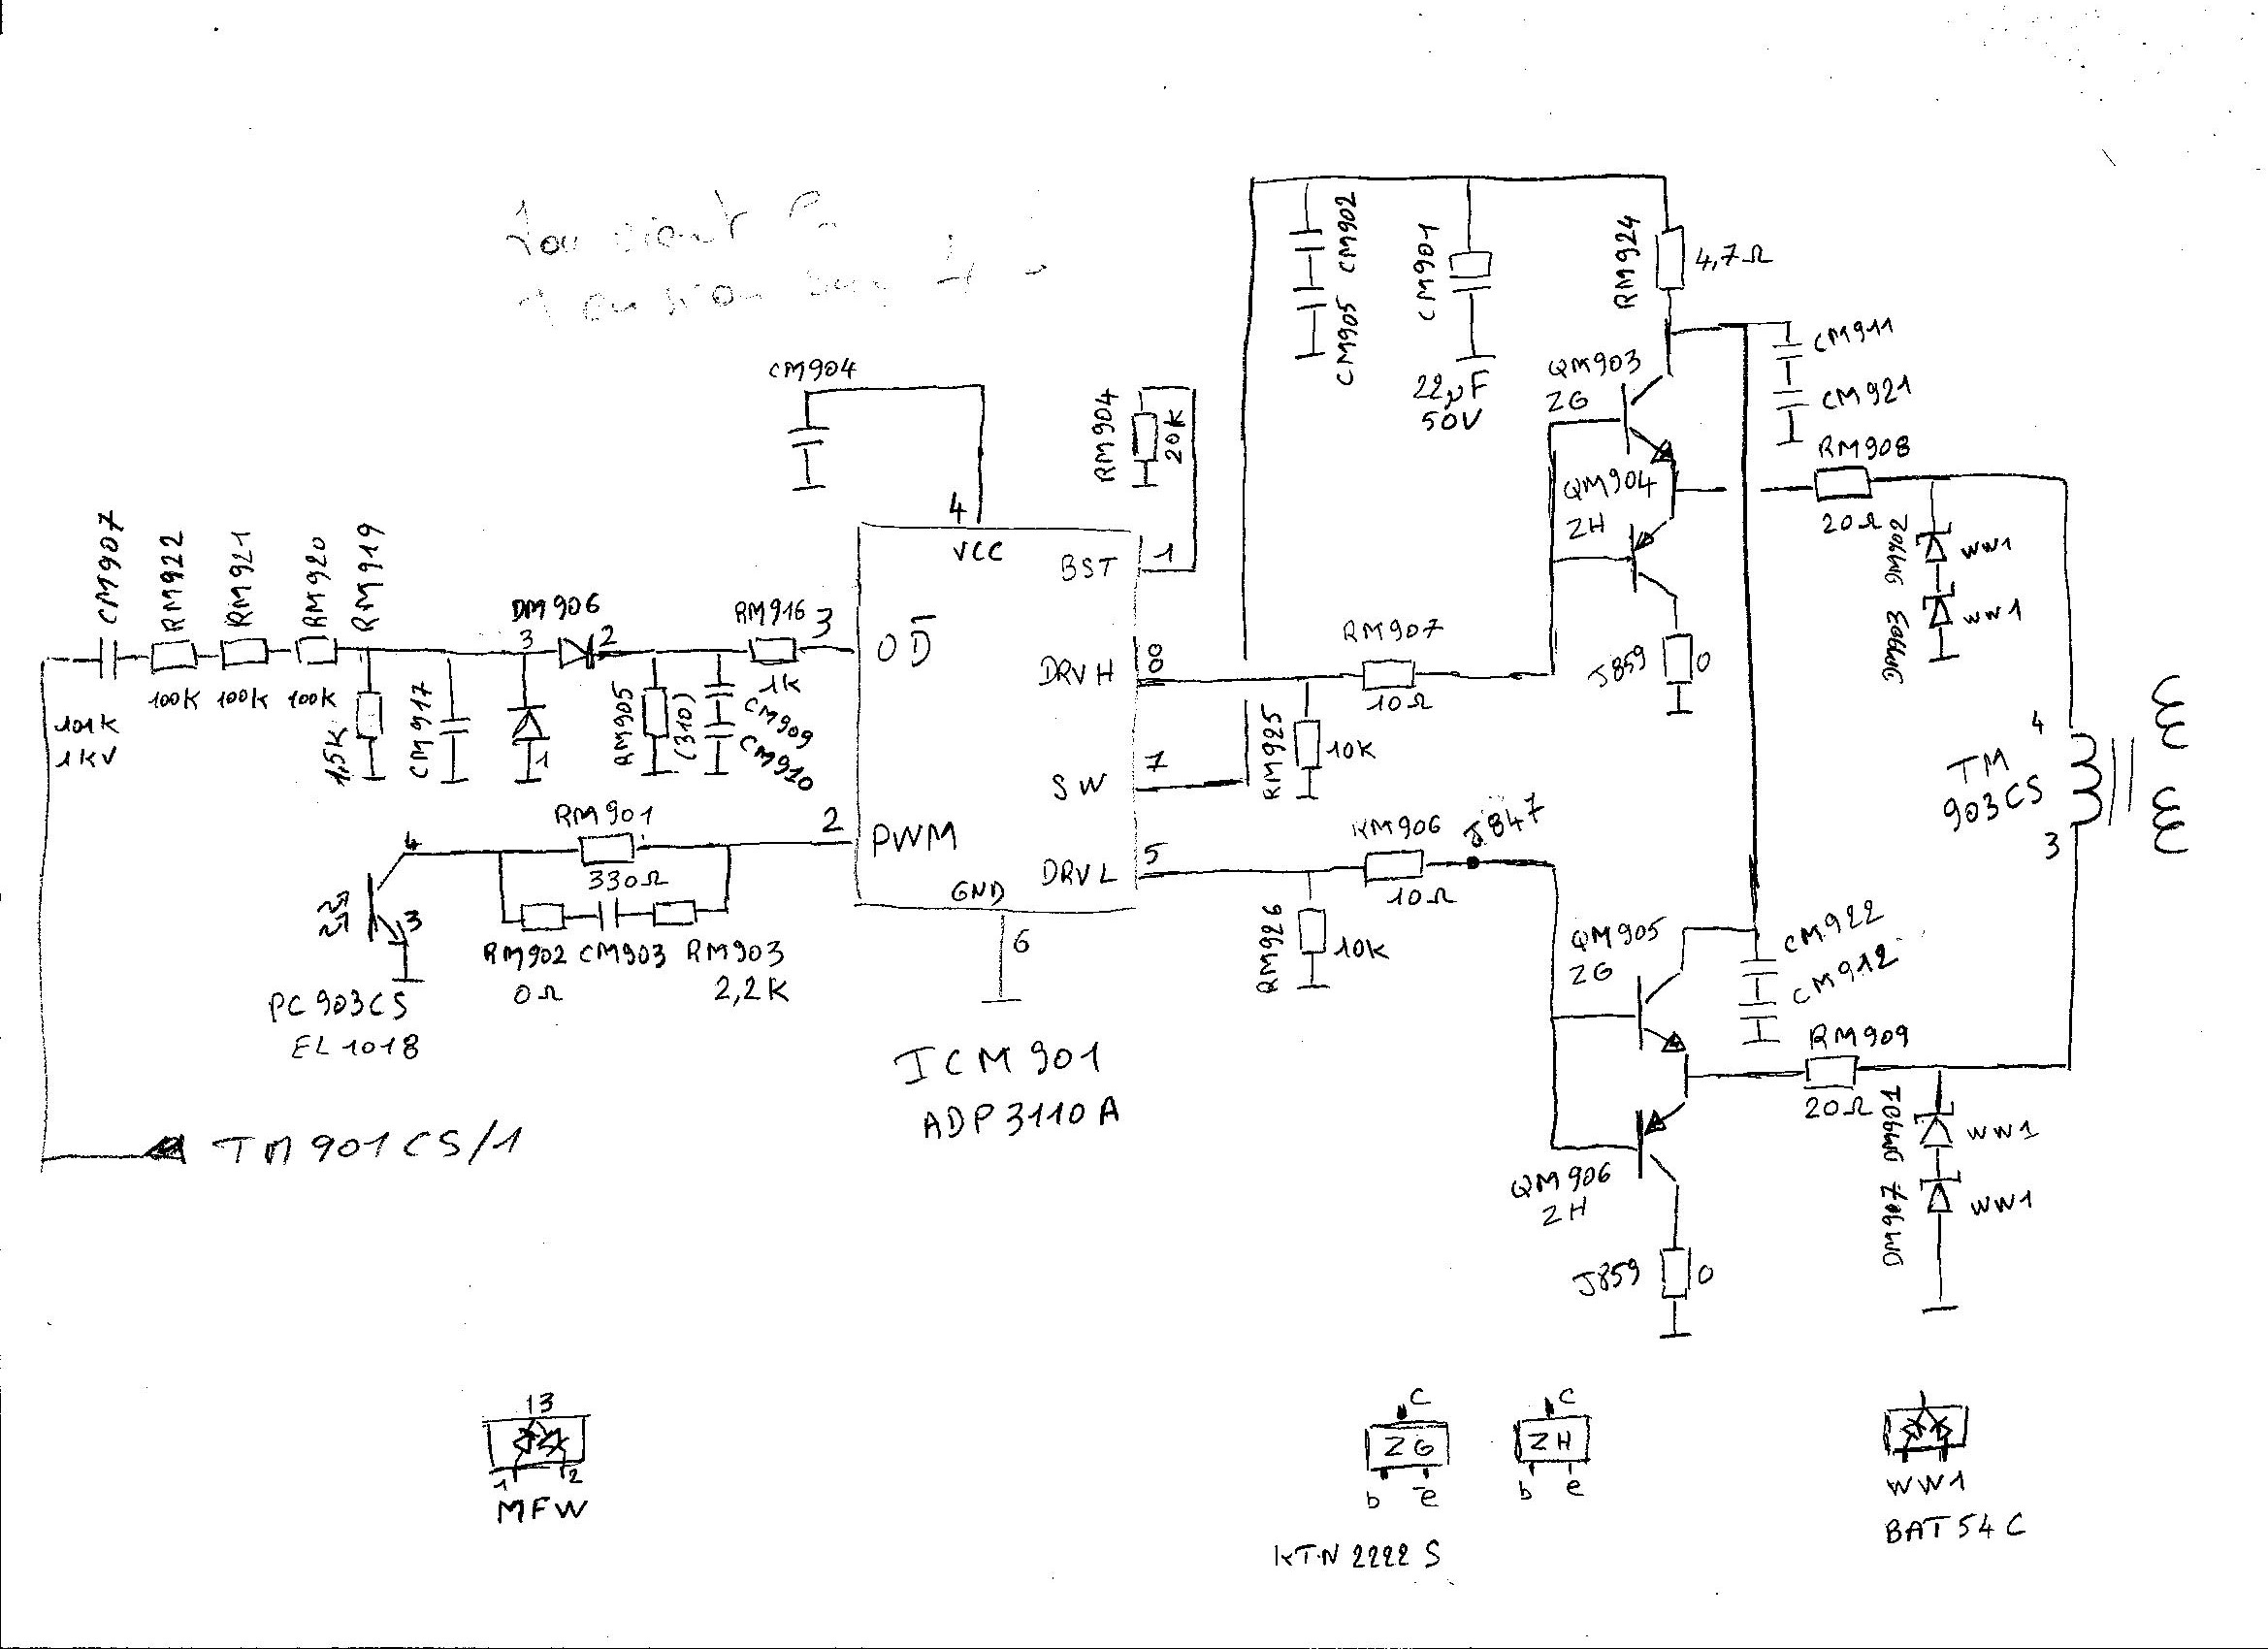 CM904
CM907
101K
1KV
RM922
100K
RM921
100K
RM920
100K
RM919
1,5K
CM917
DM906
3
2
1
RM905
(310)
CM909
CM910
RM916
1K
3
4
VCC
BST
1
OD
DRVH
8
SW
7
PWM
2
DRVL
5
GND
6
RM904
20K
RM901
330Ω
RM902
0Ω
CM903
RM903
2,2K
4
3
PC903CS
EL1018
TM901CS/1
ICM901
ADP3110A
CM902
CM905
CM901
22µF
50V
RM924
4,7Ω
QM903
ZG
QM904
ZH
CM911
CM921
RM908
20Ω
DM903
DM902
WW1
WW1
J859
0
RM907
10Ω
RM925
10K
RM906
10Ω
J847
RM926
10K
QM905
ZG
CM922
CM912
RM909
20Ω
DM907
DM901
WW1
WW1
QM906
ZH
J859
0
4
TM
903CS
3
13
1
2
MFW
C
ZG
b
e
C
ZH
b
e
KTN2222S
WW1
BAT54C